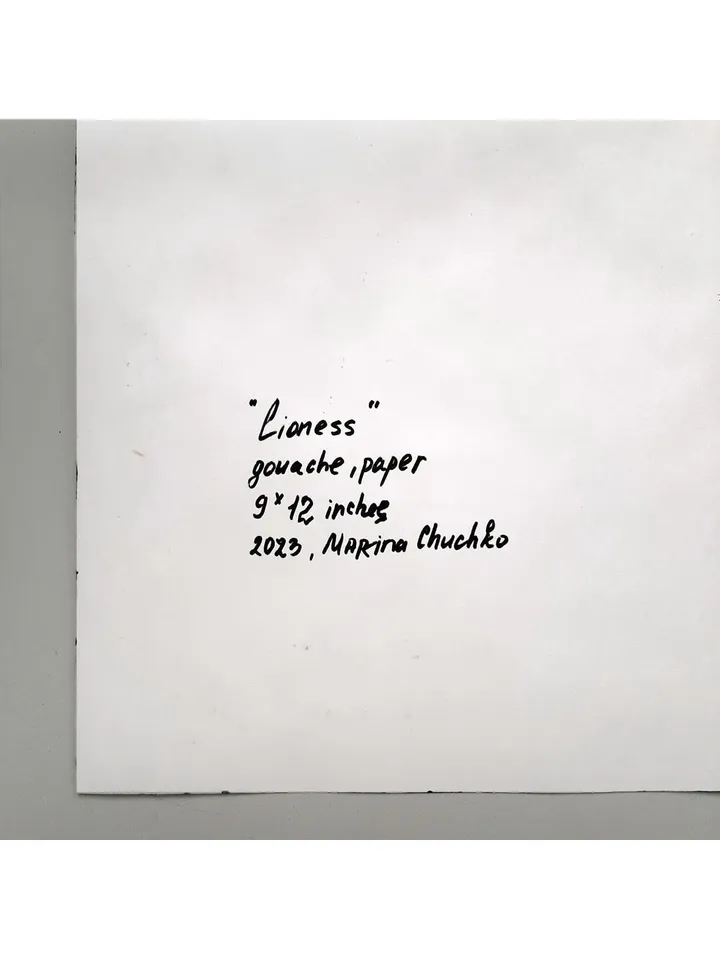 "Lioness"
gouache, paper
9 x 12 inches
2023, Marina Chuchko